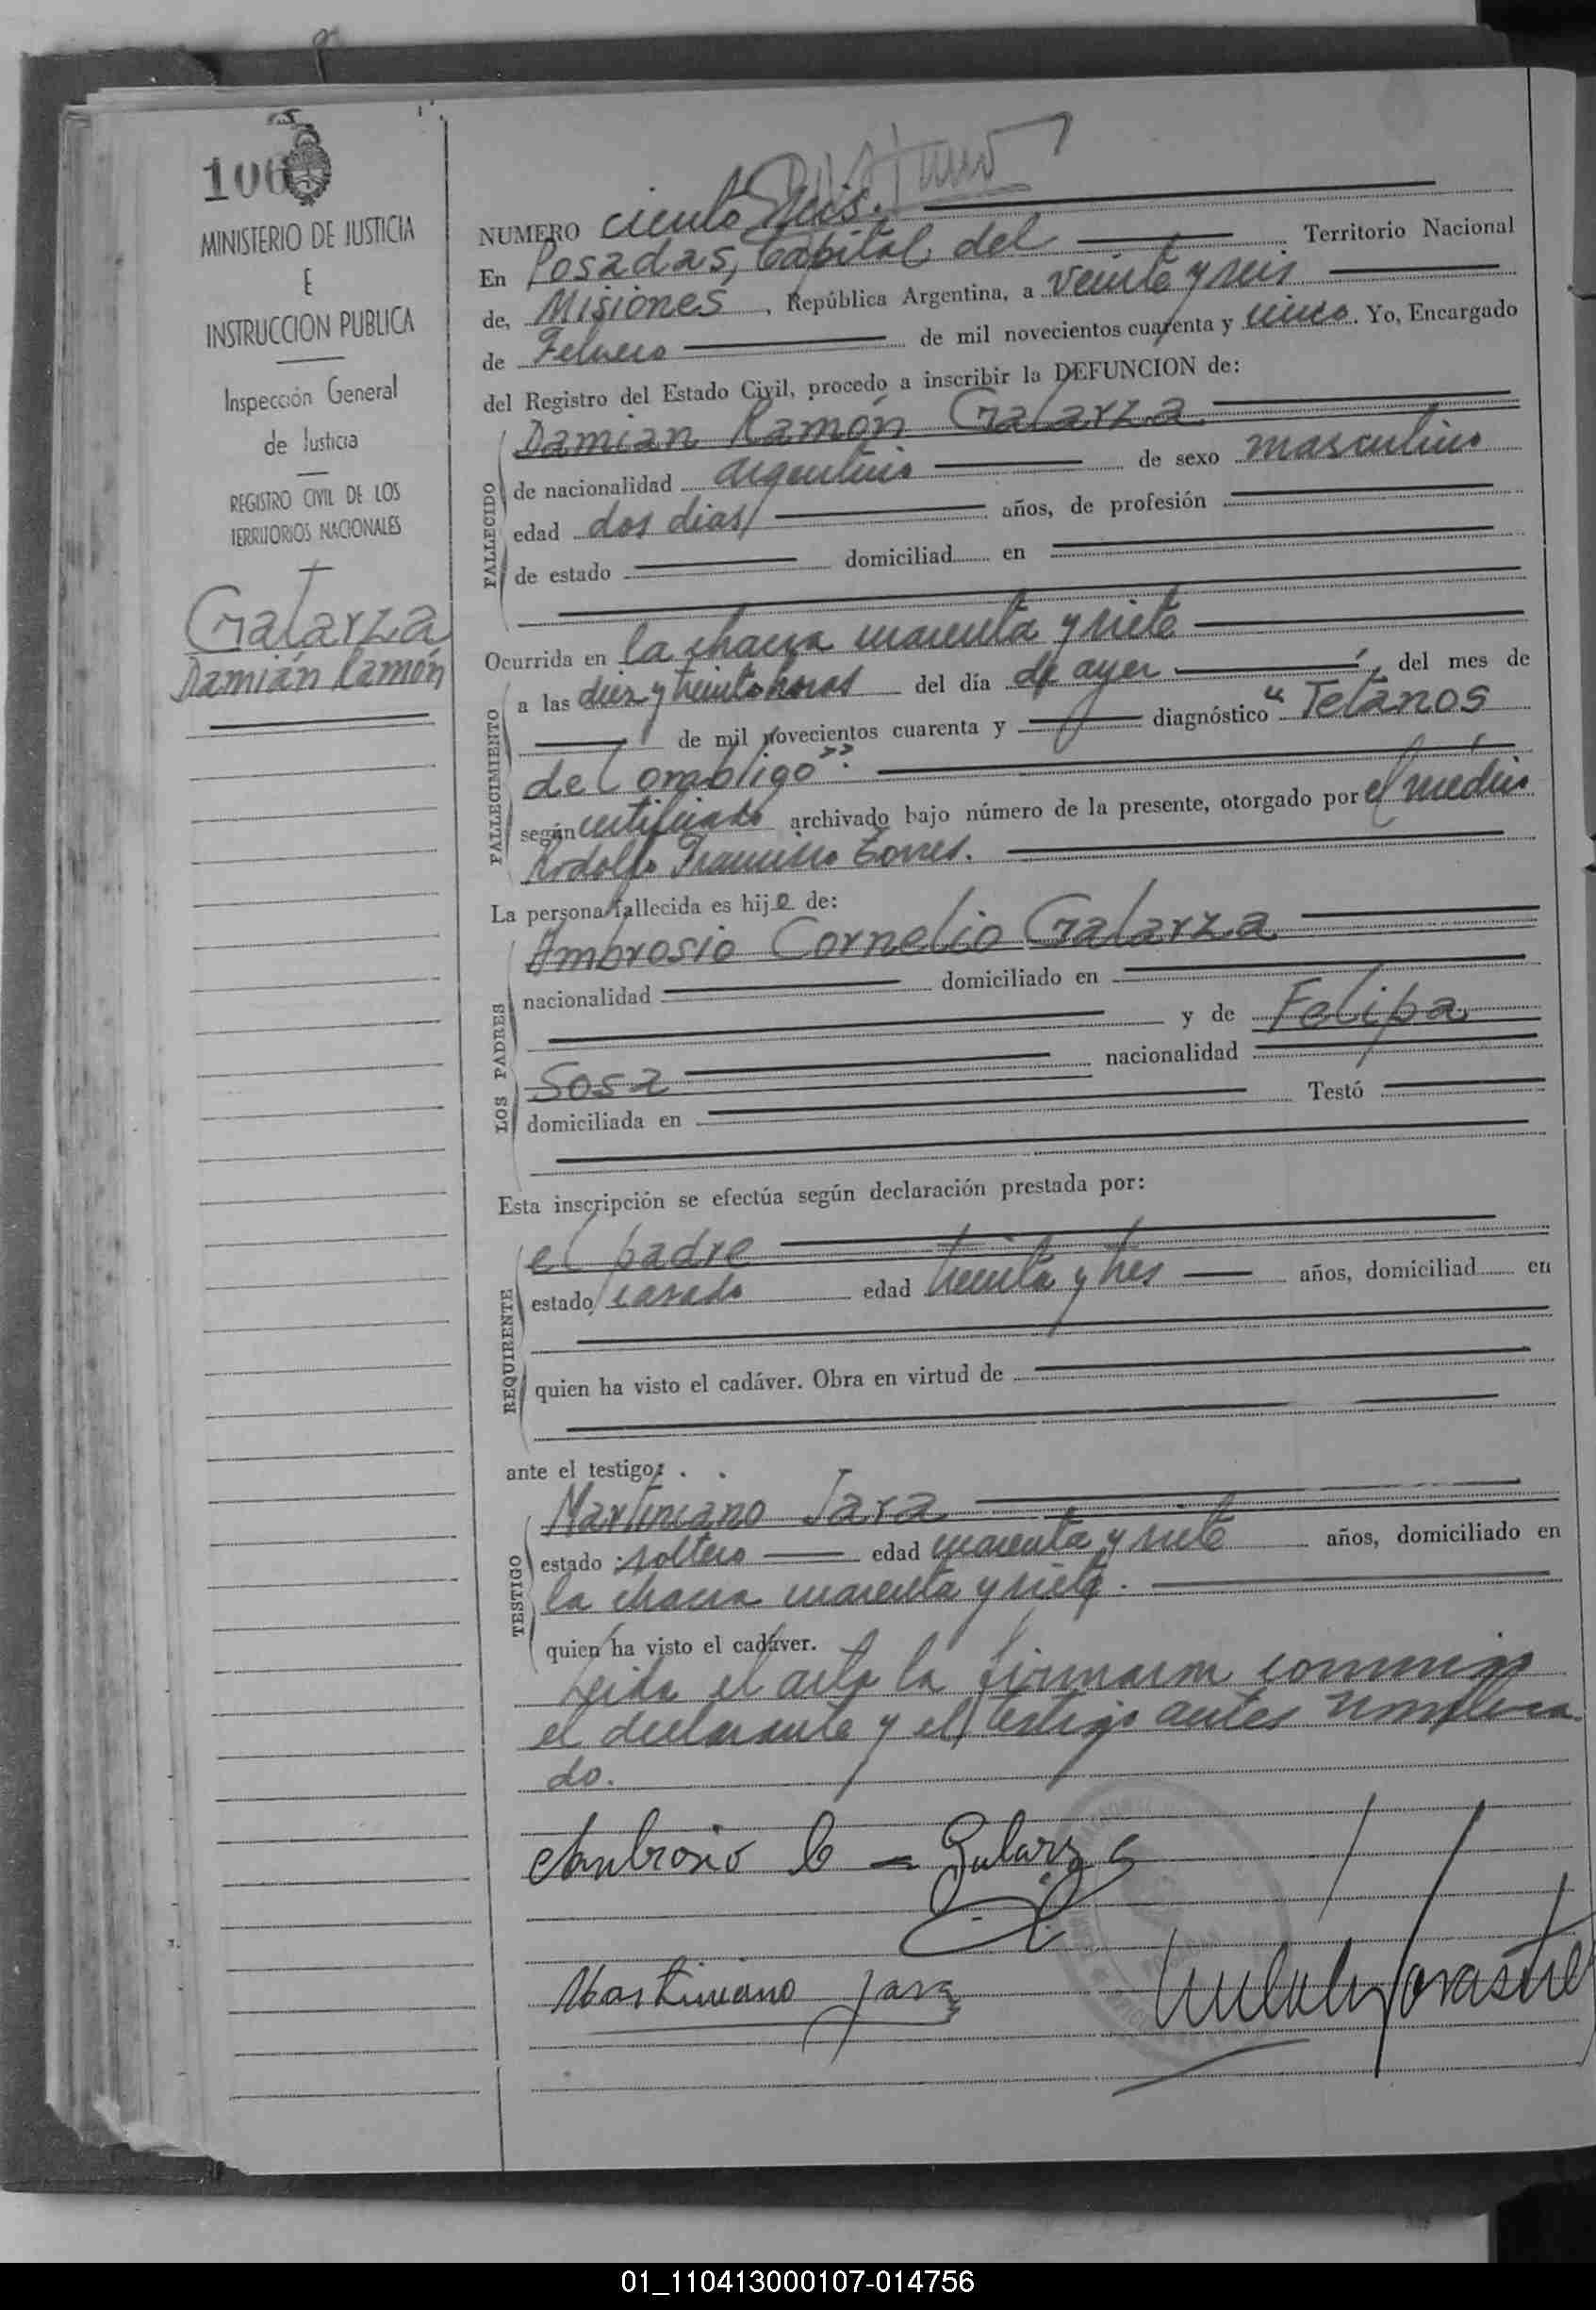 106
MINISTERIO DE JUSTICIA
E
INSTRUCCION PUBLICA
Inspección General
de Justicia
REGISTRO CIVIL DE LOS
TERRITORIOS NACIONALES
Galarza
Damián Ramón
NUMERO ciento seis.
En Posadas, Capital del Territorio Nacional
de, Misiones, República Argentina, a veinte y seis
de Febrero de mil novecientos cuarenta y cinco. Yo, Encargado
del Registro del Estado Civil, procedo a inscribir la DEFUNCION de:
FALLECIDO
Damian Ramón Galarza
de nacionalidad argentino de sexo masculino
edad dos dias años, de profesión
de estado domiciliad en
Ocurrida en la chacra cuarenta y siete
FALLECIMIENTO
a las diez y treinta horas del día de ayer, del mes de
de mil novecientos cuarenta y diagnóstico "Tetanos
del ombligo".
según certificado archivado bajo número de la presente, otorgado por el médico
Rodolfo Francisco Torres.
La persona fallecida es hijo de:
LOS PADRES
Ambrosio Cornelio Galarza
nacionalidad domiciliado en
y de Felipa
Sosa nacionalidad
domiciliada en Testó
Esta inscripción se efectúa según declaración prestada por:
REQUIRENTE
el padre
estado casado edad treinta y tres años, domiciliad en
quien ha visto el cadáver. Obra en virtud de
ante el testigo:
TESTIGO
Martiniano Jara
estado soltero edad cuarenta y siete años, domiciliado en
la chacra cuarenta y siete.
quien ha visto el cadáver.
Leida el acta la firmaron conmigo
el declarante y el testigo antes nombra
do.
Ambrosio C Galarza
Martiniano Jara
01_110413000107-014756